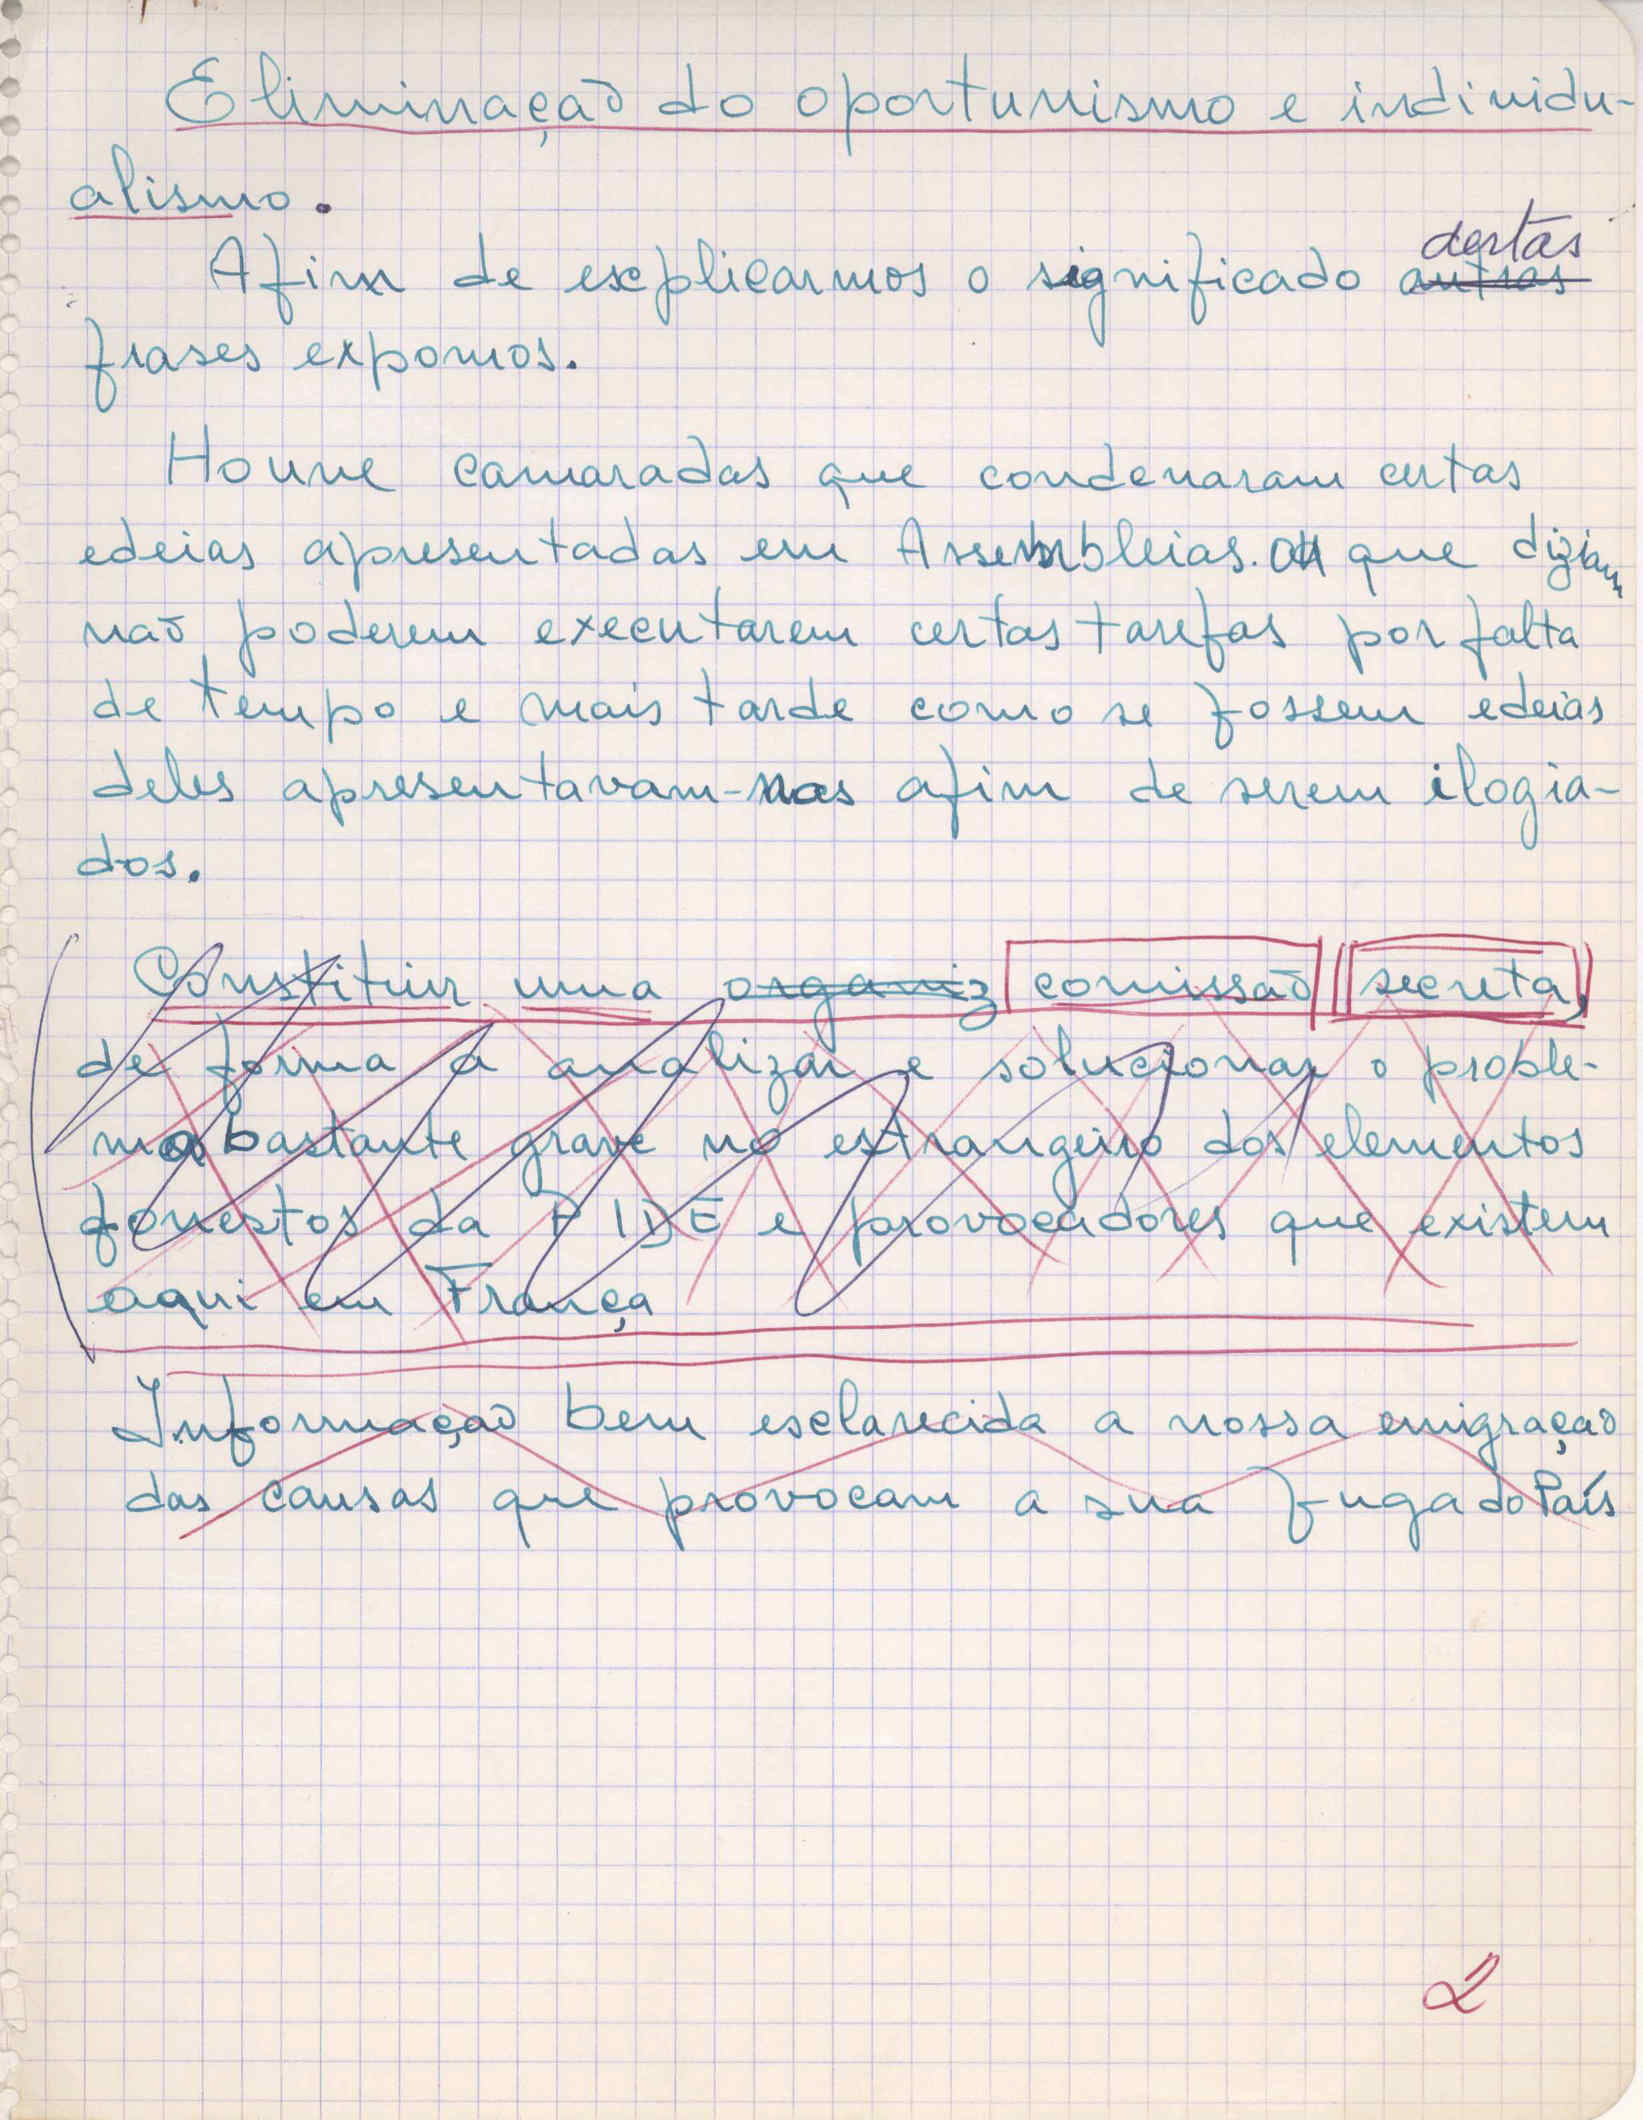 Eliminação do oportunismo e individu-
alismo.
destas
Afim de explicarmos o significado outras
frases expomos.
Houve camaradas que condenaram certas
edeias apresentadas em Assembleias. ou que diziam
não poderem executarem certas tarefas por falta
de tempo e mais tarde como se fossem edeias
deles apresentavam-nas afim de serem ilogia-
dos.
Constituir uma organiz comissão secreta,
de forma a analizar e solucionar o proble-
ma bastante grave no estrangeiro dos elementos
fonestos da PIDE e provocadores que existem
aqui em França
Informação bem esclarecida a nossa emigração
das causas que provocam a sua fuga do País
2